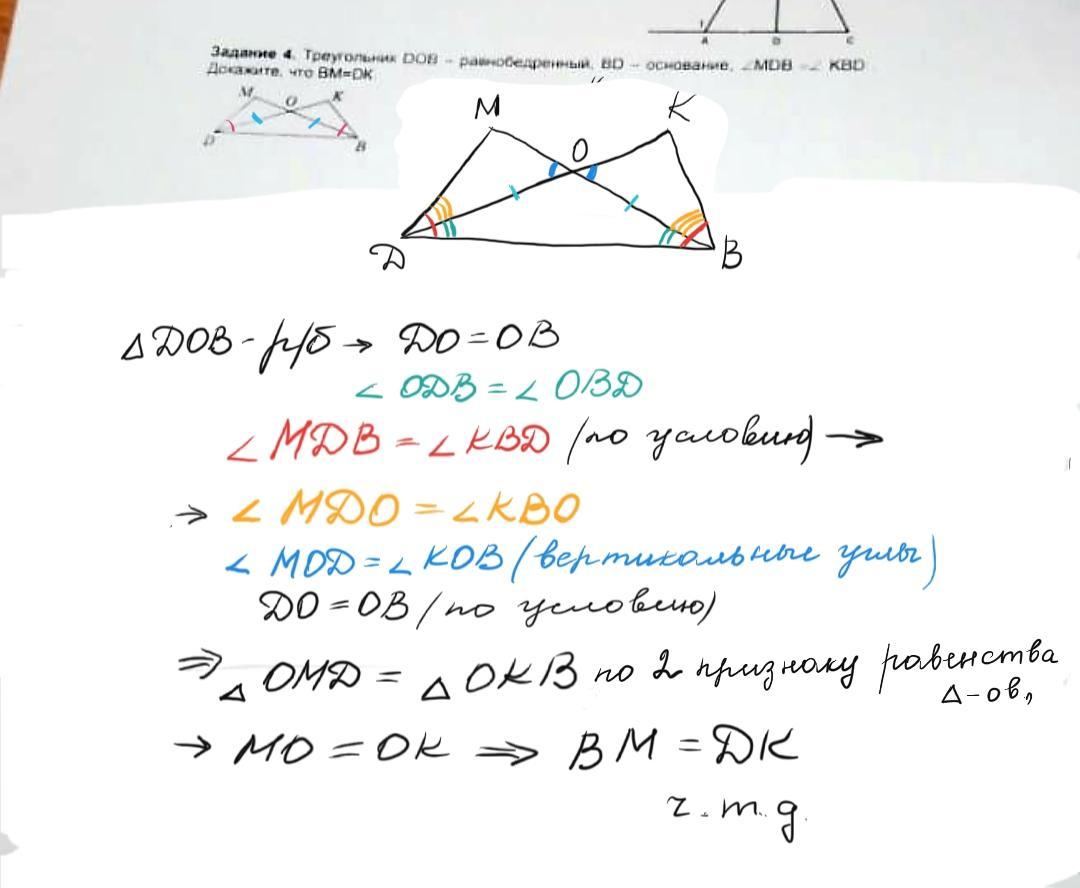 A D C
Задание 4. Треугольник DOB – равнобедренный, BD – основание, ∠MDB = ∠ KBD
Докажите, что BM=DK
M O K
D B
M K
O
D B
△ DOB - р/б → DO = OB
∠ ODB = ∠ OBD
∠ MDB = ∠ KBD (по условию) →
→ ∠ MDO = ∠KBO
∠ MOD = ∠ KOB (вертикальные углы)
DO = OB (по условию)
⇒ △ OMD = △ OKB по 2 признаку равенства
△-ов,
→ MO = OK ⇒ BM = DK
ч.т.д.